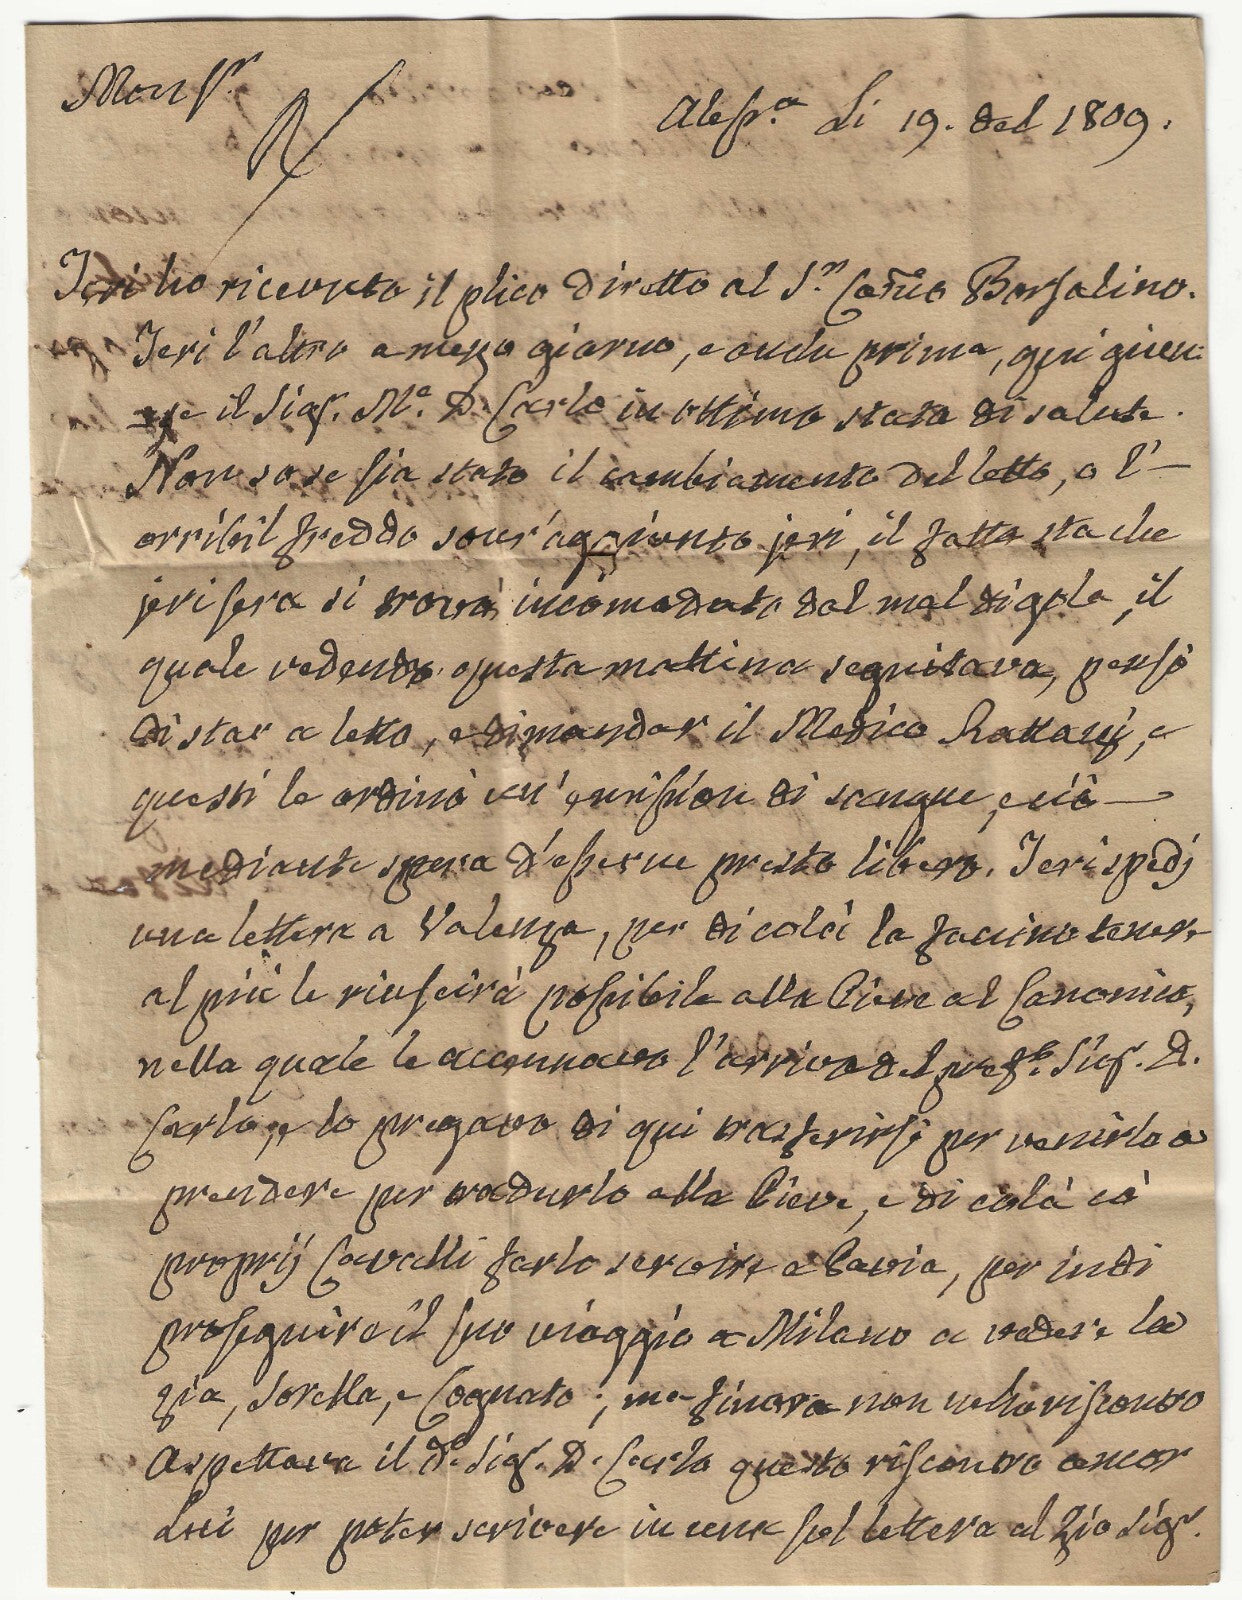 Monsr.
Alessa. Li 19. del 1809.
Ieri ho ricevuto il plico diretto al Sr. Borsalino.
Ieri l'altro a mezzo giorno, e anche prima, qui giun:
se il Sigr. Me. D. Carlo in ottimo stato di salute.
Non so se sia stato il cambiamento del letto, o l'
orribil freddo sovr'aggiunto jeri, il fatto sta che
jeri sera si trovò incomodato dal mal di gola, il
quale vedendo questa mattina seguitava, pensò
di star a letto, e di mandar il Medico e
questi le ordinò un' emission di sangue, e ciò
mediante spera d'esserne presto libero. Ieri spedj
una lettera a Valenza, per di colà la faccino tenere
al più le riuscirà possibile alla Pieve al Canonico,
nella quale le accennavo l'arrivo del prefto. Sigr. D.
Carlo, e lo pregavo di qui trasferirsi per venirlo a
prendere per tradurlo alla Pieve, e di colà cò
proprij Cavalli farlo servire a Pavia, per indi
proseguire il suo viaggio a Milano a vedere la
zia, Sorella, e Cognato; ma finora non ne ho riscontro
Aspettava il do. Sigr. D. Carlo questo riscontro ancor
Lui per poter scrivere in una sol lettera al Zio Sigr.